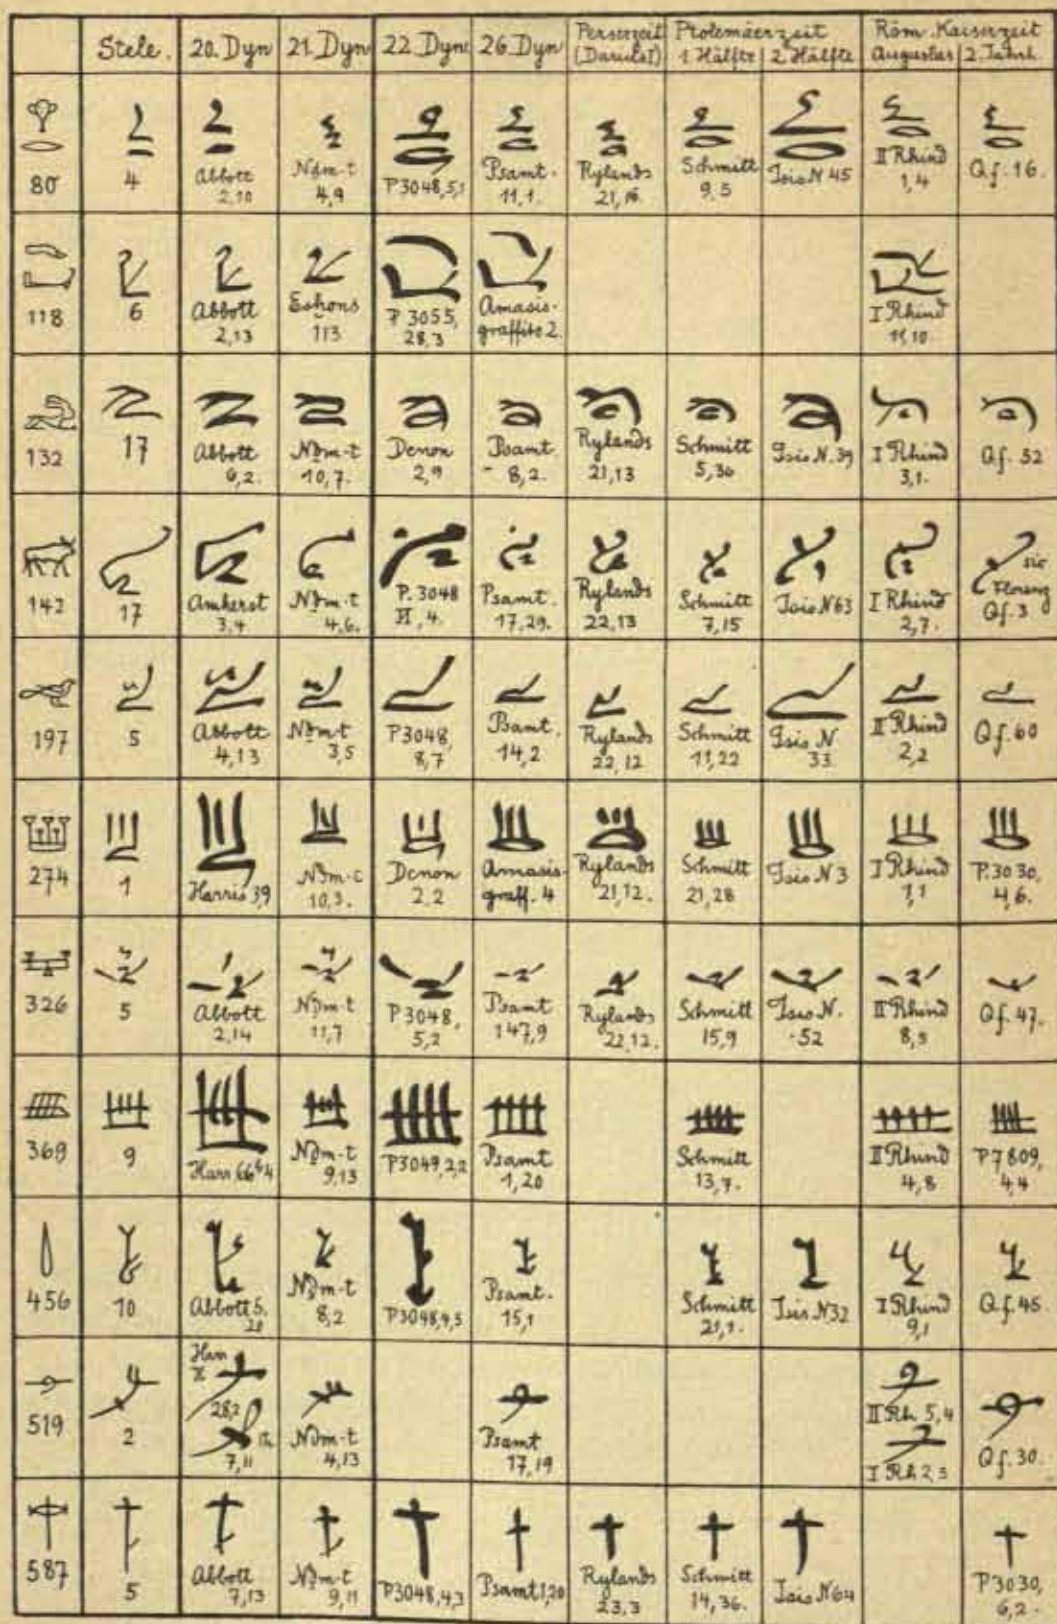 Stele. 20. Dyn 21. Dyn 22. Dyn 26. Dyn Perserzeit (Darius I) Ptolemäerzeit 1. Hälfte 2. Hälfte Röm. Kaiserzeit Augustus 2. Jahrh.
80 4 Abbott 2,10 Nḏm-t 4,9 P3048,5,1 Psamt. 11,1. Rylands 21,16. Schmitt 9,5 Isis N 45 II Rhind 1,4 Q.f. 16.
118 6 Abbott 2,13 113 P 3055, 28,3 Amasis-graffito 2. I Rhind 11,10
132 17 Abbott 6,2. Nḏm-t 10,7. Denon 2,9 Psamt 8,2. Rylands 21,13 Schmitt 5,36 Isis N. 39 I Rhind 3,1. Q.f. 32
142 17 Amherst 3,4 Nḏm-t 4,6. P. 3048 4. Psamt. 17,29. Rylands 22,13 Schmitt 7,15 Isis N63 I Rhind 2,7. sic Q.f. 3
197 5 Abbott 4,13 Nḏm-t 3,5 P3048, 8,7 Psamt. 14,2 Rylands 22,12 Schmitt 11,22 Isis N 33 II Rhind 2,2 Q.f. 60
274 1 Harris 3,9 Nḏm-t 10,3. Denon 2,2 Amasis-graff. 4 Rylands 21,12. Schmitt 21,28 Isis N 3 I Rhind 1,1 P. 3030, 4,6.
326 5 Abbott 2,14 Nḏm-t 11,7 P3048, 5,2 Psamt 147,9 Rylands 22,12. Schmitt 15,9 Isis N. 52 II Rhind 8,3 Q.f. 47.
369 9 Harr. Nḏm-t 9,13 P3049,2,2 Psamt 1,20 Schmitt 13,7. II Rhind 4,8 P7809, 4,4
456 10 Abbott 5, 21 Nḏm-t 8,2 P3048,4,3 Psamt. 15,1 Schmitt 21,1. Isis N32 I Rhind 9,1 Q.f. 45
519 2 Harr 7,11 Nḏm-t 4,13 Psamt 17,19 II Rh. 5,4 I Rh 2,3 Q.f. 30.
587 5 Abbott 7,13 Nḏm-t 9,11 P3048,4,3 Psamt 1,20 Rylands 23,3 Schmitt 14,36. Isis N64 P3030, 6,2.